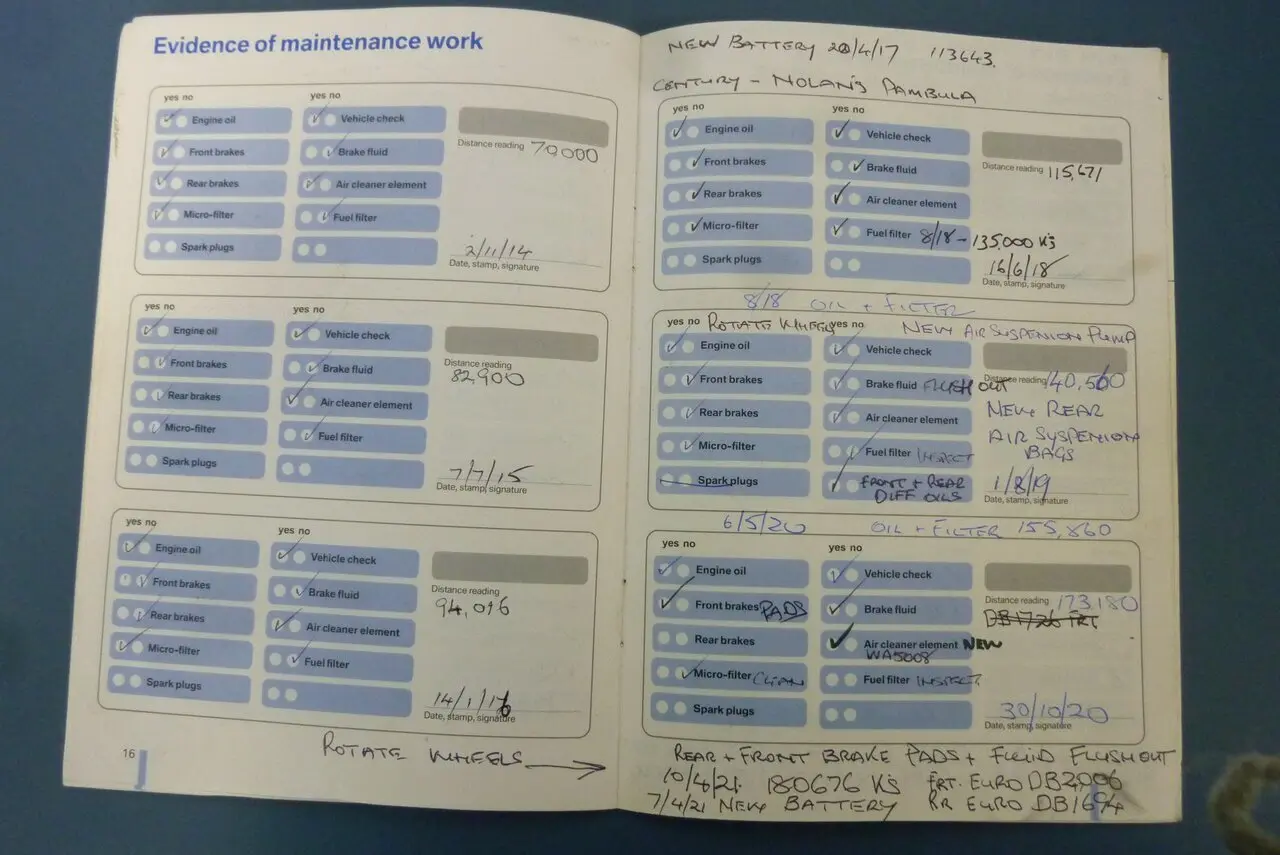 Evidence of maintenance work
yes no yes no
Engine oil Vehicle check
Distance reading 70,000
Front brakes Brake fluid
Rear brakes Air cleaner element
Micro-filter Fuel filter
Spark plugs
2/11/14
Date, stamp, signature
yes no yes no
Engine oil Vehicle check
Distance reading
82,900
Front brakes Brake fluid
Rear brakes Air cleaner element
Micro-filter Fuel filter
Spark plugs
7/7/15
Date, stamp, signature
yes no yes no
Engine oil Vehicle check
Distance reading
94,016
Front brakes Brake fluid
Rear brakes Air cleaner element
Micro-filter Fuel filter
Spark plugs
14/1/16
Date, stamp, signature
16
ROTATE WHEELS
NEW BATTERY 20/4/17 113643.
CENTURY - NOLAN'S PAMBULA
yes no yes no
Engine oil Vehicle check
Distance reading 115,671
Front brakes Brake fluid
Rear brakes Air cleaner element
Micro-filter Fuel filter 8/18 - 135,000 K's
Spark plugs
16/6/18
Date, stamp, signature
8/18 OIL + FILTER
yes no ROTATE WHEELS yes no NEW AIR SUSPENION PUMP
Engine oil Vehicle check
Distance reading 140,560
Front brakes Brake fluid FLUSH OUT
NEW REAR
Rear brakes Air cleaner element
AIR SUSPENION
BAGS
Micro-filter Fuel filter INSPECT
Spark plugs FRONT + REAR
DIFF OILS
1/8/19
Date, stamp, signature
6/5/20 OIL + FILTER 155,860
yes no yes no
Engine oil Vehicle check
Distance reading 173,180
Front brakes PADS Brake fluid
DB1726 FRT
Rear brakes Air cleaner element NEW
WA5008
Micro-filter CLEAN Fuel filter INSPECT
Spark plugs
30/10/20
Date, stamp, signature
REAR + FRONT BRAKE PADS + FLUID FLUSH OUT
10/4/21. 180676 K's FRT. EURO DB2006
7/4/21 NEW BATTERY RR EURO DB1694